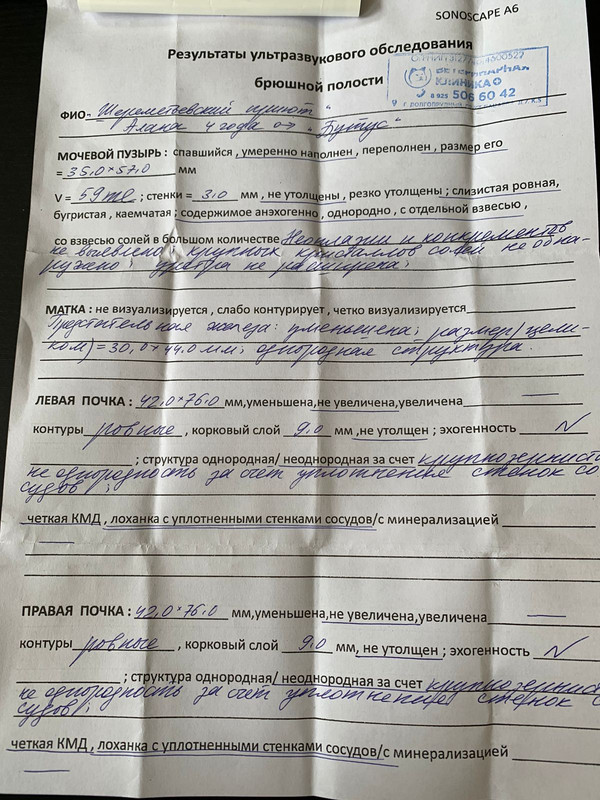 SONOSCAPE A6
Результаты ультразвукового обследования
брюшной полости
ВЕТЕРИНАРНАЯ
КЛИНИКА
8 925 506 60 42
ФИО- Шереметьевский приют "
Алана 4 года "Буттус"
МОЧЕВОЙ ПУЗЫРЬ : спавшийся , умеренно наполнен , переполнен , размер его
= 35,0×57,0 мм
V = 59 мл ; стенки = 3,0 мм , не утолщены , резко утолщены ; слизистая ровная,
бугристая , каемчатая ; содержимое анэхогенно , однородно , с отдельной взвесью ,
со взвесью солей в большом количестве Неоплазии и конкрементов
не выявлено, крупных кристаллов солей не обна-
ружено; уретра не расширена;
МАТКА : не визуализируется , слабо контурирует , четко визуализируется
Предстательная железа: уменьшена; размер/цели-
ком) = 30,0×44,0 мм; однородная структура.
ЛЕВАЯ ПОЧКА : 42,0×76,0 мм,уменьшена,не увеличена,увеличена —
контуры ровные , корковый слой 9,0 мм ,не утолщен ; эхогенность N
; структура однородная/ неоднородная за счет крупнозернист
неоднородность за счет уплотнения стенок со
судов ;
четкая КМД , лоханка с уплотненными стенками сосудов/с минерализацией
—
ПРАВАЯ ПОЧКА : 42,0×76,0 мм,уменьшена,не увеличена,увеличена —
контуры ровные , корковый слой 9,0 мм, не утолщен ; эхогенность N
; структура однородная/ неоднородная за счет крупнозернист
неоднородность за счет уплотнения стенок с
судов/;
четкая КМД , лоханка с уплотненными стенками сосудов/с минерализацией
—